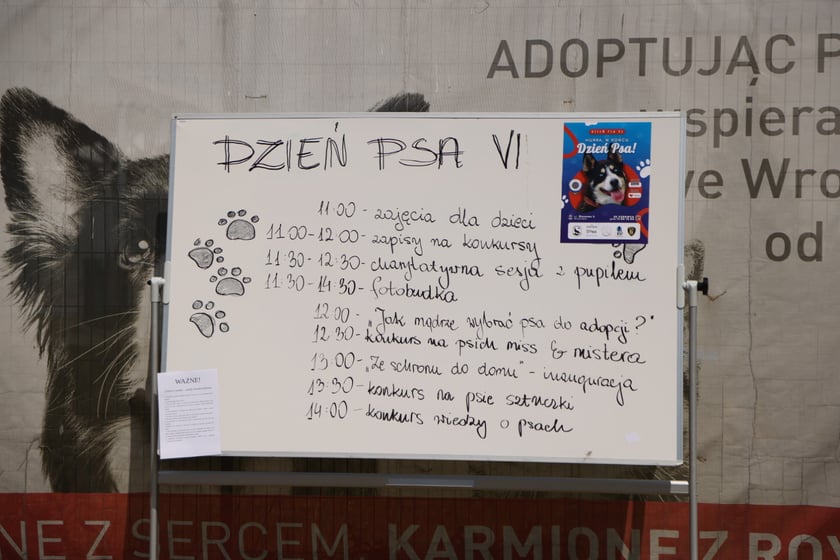 ADOPTUJĄC P
wspiera
we Wro
od
DZIEŃ PSA VI
Dzień Psa!
11:00 - zajęcia dla dzieci
11:00-12:00 - zapisy na konkursy
11:30-12:30 - charytatywna sesja z pupilem
11:30-14:30 - fotobudka
12:00 - "Jak mądrze wybrać psa do adopcji?"
12:30 - konkurs na psich miss & mistera
13:00 - "Ze schronu do domu" - inauguracja
13:30 - konkurs na psie sztuczki
14:00 - konkurs wiedzy o psach
WAŻNE!
NE Z SERCEM, KARMIONE Z ROZ